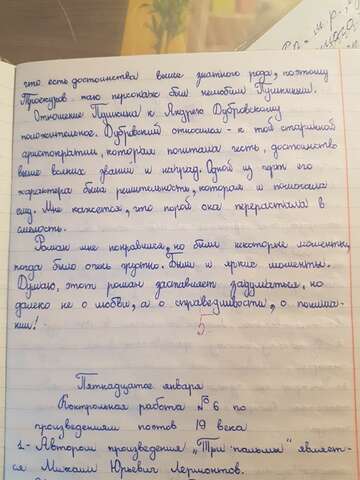 что есть достоинства выше знатного рода, поэтому
Троекуров как персонаж был нелюбим Пушкиным.
Отношение Пушкина к Андрею Дубровскому
положительное. Дубровский относился - к той старинной
аристократии, которая почитала честь, достоинство
выше всяких званий и наград. Одной из черт его
характера была решительность, которая и помогала
ему. Мне кажется, что порой она перерастала в
смелость.
Роман мне понравился, но были некоторые моменты,
когда было очень грустно. Были и яркие моменты.
Думаю, этот роман заставляет задуматься, но
далеко не о любви, а о справедливости, о понима-
нии!
5
Пятнадцатое января
Контрольная работа №6 по
произведениям поэтов 19 века
1- Автором произведения "Три пальмы" являет-
ся Михаил Юрьевич Лермонтов.